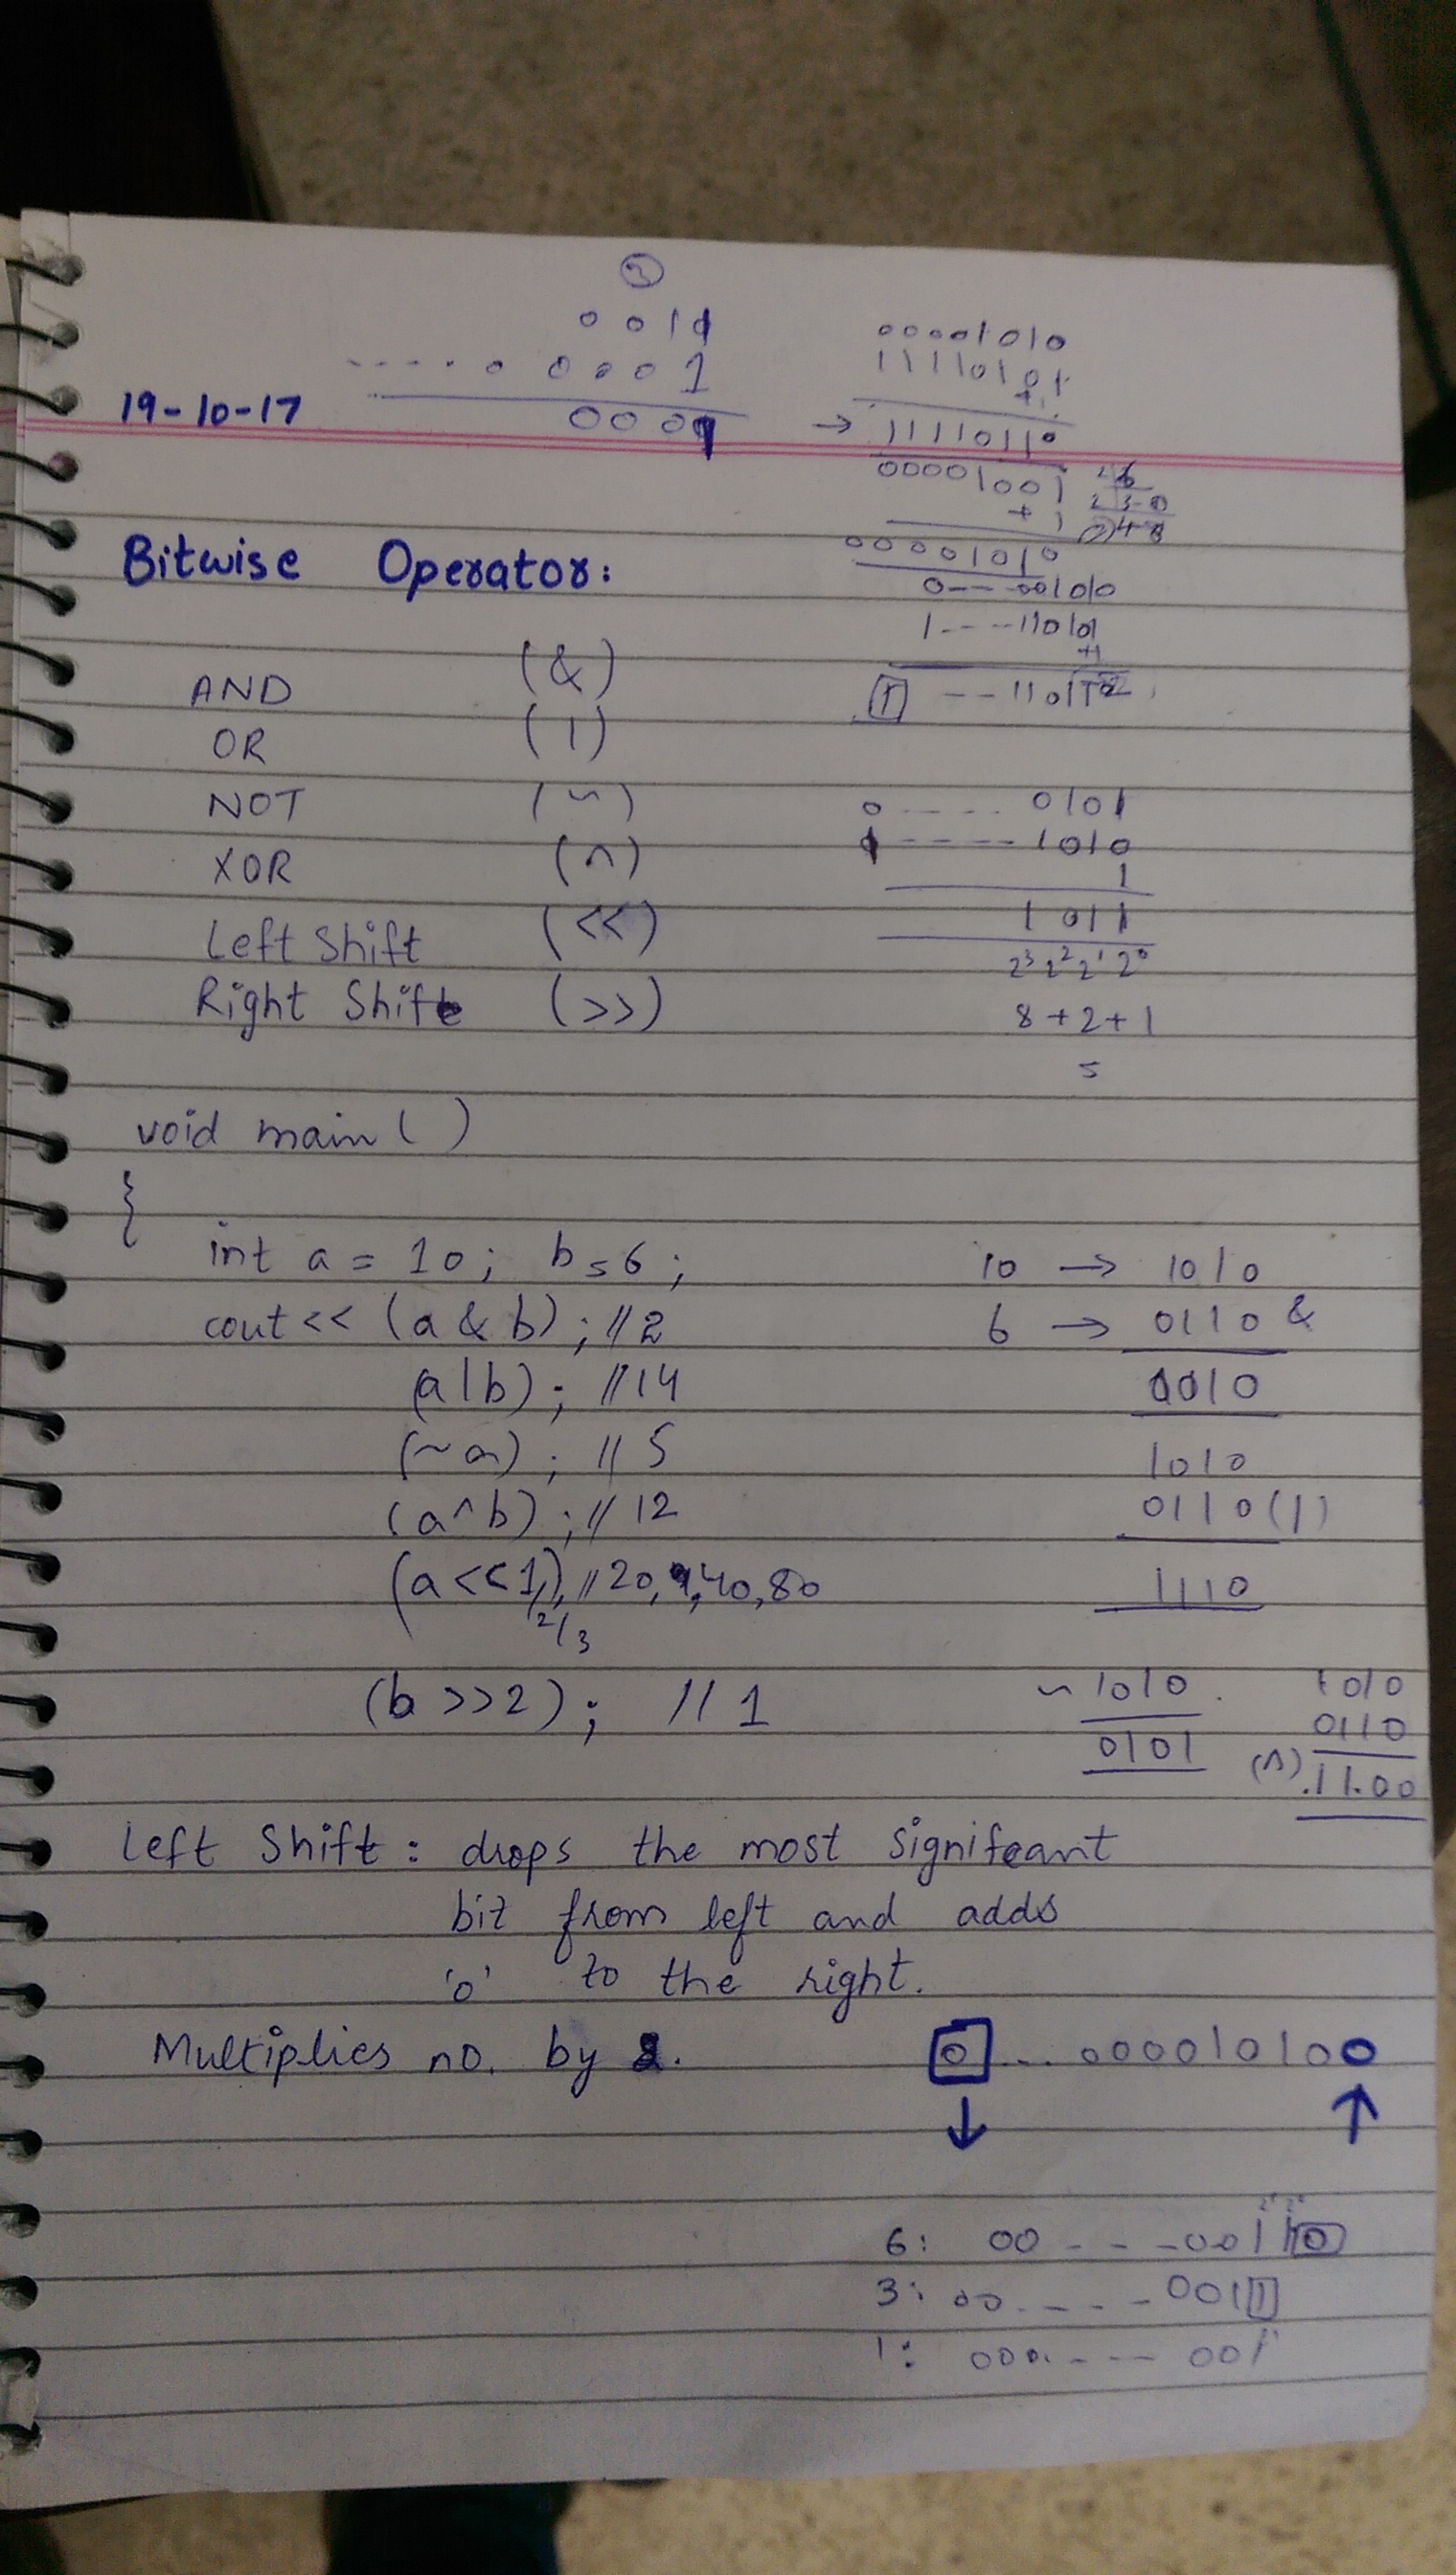 0 0 1 1
- - - - - 0 0 0 0 1
0 0 0 1
0 0 0 0 1 0 1 0
1 1 1 1 0 1 0 1
+1
→ 1 1 1 1 0 1 1 0
0 0 0 0 1 0 0 1
+ 1
0 0 0 0 1 0 1 0
0 - - - 0 0 1 0 1 0
19-10-17
Bitwise Operator:
AND (&)
OR (|)
NOT (~)
XOR (^)
Left Shift (<<)
Right Shift (>>)
0 - - - - 0 1 0 1
1 - - - - - 1 0 1 0
1
1 0 1 1
2³ 2² 2¹ 2⁰
8 + 2 + 1
5
void main ( )
{
int a = 10; b = 6;
cout << (a & b); //2
(a|b); //14
(~a); //5
(a^b); //12
(a<<1); //20, 40, 80
2/3
(b >>2); // 1
10 → 1010
6 → 0110 &
0010
1010
0110 (|)
1110
~ 1010
0101
1010
0110
(^) 1100
Left Shift: drops the most signifcant
bit from left and adds
'0' to the right.
Multiplies no. by 2.
0 ... 000010100
↓ ↑
6: 00 - - - 00110
3: 00 - - - - 0011
1: 000 - - - 001